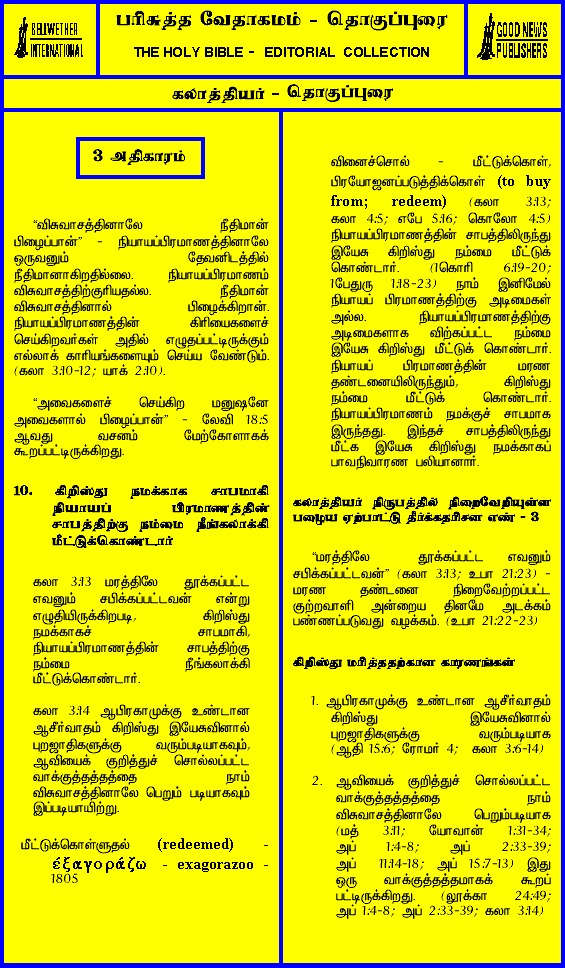 BELLWETHER
INTERNATIONAL
பரிசுத்த வேதாகமம் - தொகுப்புரை
THE HOLY BIBLE - EDITORIAL COLLECTION
GOOD NEWS
PUBLISHERS
கலாத்தியர் - தொகுப்புரை
3 அதிகாரம்
“விசுவாசத்தினாலே நீதிமான்
பிழைப்பான்” - நியாயப்பிரமாணத்தினாலே
ஒருவனும் தேவனிடத்தில்
நீதிமானாகிறதில்லை. நியாயப்பிரமாணம்
விசுவாசத்திற்குரியதல்ல. நீதிமான்
விசுவாசத்தினால் பிழைக்கிறான்.
நியாயப்பிரமாணத்தின் கிரியைகளைச்
செய்கிறவர்கள் அதில் எழுதப்பட்டிருக்கும்
எல்லாக் காரியங்களையும் செய்ய வேண்டும்.
(கலா 3:10-12; யாக் 2:10).
“அவைகளைச் செய்கிற மனுஷனே
அவைகளால் பிழைப்பான்” - லேவி 18:5
ஆவது வசனம் மேற்கோளாகக்
கூறப்பட்டிருக்கிறது.
10. கிறிஸ்து நமக்காக சாபமாகி
நியாயப் பிரமாணத்தின்
சாபத்திற்கு நம்மை நீங்கலாக்கி
மீட்டுக்கொண்டார்
கலா 3:13 மரத்திலே தூக்கப்பட்ட
எவனும் சபிக்கப்பட்டவன் என்று
எழுதியிருக்கிறபடி, கிறிஸ்து
நமக்காகச் சாபமாகி,
நியாயப்பிரமாணத்தின் சாபத்திற்கு
நம்மை நீங்கலாக்கி
மீட்டுக்கொண்டார்.
கலா 3:14 ஆபிரகாமுக்கு உண்டான
ஆசீர்வாதம் கிறிஸ்து இயேசுவினால்
புறஜாதிகளுக்கு வரும்படியாகவும்,
ஆவியைக் குறித்துச் சொல்லப்பட்ட
வாக்குத்தத்தத்தை நாம்
விசுவாசத்தினாலே பெறும் படியாகவும்
இப்படியாயிற்று.
மீட்டுக்கொள்ளுதல் (redeemed) -
έξαγοράζω - exagorazoo -
1805
வினைச்சொல் - மீட்டுக்கொள்,
பிரயோஜனப்படுத்திக்கொள் (to buy
from; redeem) (கலா 3:13;
கலா 4:5; எபே 5:16; கொலோ 4:5)
நியாயப்பிரமாணத்தின் சாபத்திலிருந்து
இயேசு கிறிஸ்து நம்மை மீட்டுக்
கொண்டார். (1கொரி 6:19-20;
1பேதுரு 1:18-23) நாம் இனிமேல்
நியாயப் பிரமாணத்திற்கு அடிமைகள்
அல்ல. நியாயப்பிரமாணத்திற்கு
அடிமைகளாக விற்கப்பட்ட நம்மை
இயேசு கிறிஸ்து மீட்டுக் கொண்டார்.
நியாயப் பிரமாணத்தின் மரண
தண்டனையிலிருந்தும், கிறிஸ்து
நம்மை மீட்டுக் கொண்டார்.
நியாயப்பிரமாணம் நமக்குச் சாபமாக
இருந்தது. இந்தச் சாபத்திலிருந்து
மீட்க இயேசு கிறிஸ்து நமக்காகப்
பாவநிவாரண பலியானார்.
கலாத்தியர் நிருபத்தில் நிறைவேறியுள்ள
பழைய ஏற்பாட்டு தீர்க்கதரிசன எண் - 3
“மரத்திலே தூக்கப்பட்ட எவனும்
சபிக்கப்பட்டவன்” (கலா 3:13; உபா 21:23) -
மரண தண்டனை நிறைவேற்றப்பட்ட
குற்றவாளி அன்றைய தினமே அடக்கம்
பண்ணப்படுவது வழக்கம். (உபா 21:22-23)
கிறிஸ்து மரித்ததற்கான காரணங்கள்
1. ஆபிரகாமுக்கு உண்டான ஆசீர்வாதம்
கிறிஸ்து இயேசுவினால்
புறஜாதிகளுக்கு வரும்படியாக
(ஆதி 15:6; ரோமர் 4; கலா 3:6-14)
2. ஆவியைக் குறித்துச் சொல்லப்பட்ட
வாக்குத்தத்தத்தை நாம்
விசுவாசத்தினாலே பெறும்படியாக
(மத் 3:11; யோவான் 1:31-34;
அப் 1:4-8; அப் 2:33-39;
அப் 11:14-18; அப் 15:7-13) இது
ஒரு வாக்குத்தத்தமாகக் கூறப்
பட்டிருக்கிறது. (லூக்கா 24:49;
அப் 1:4-8; அப் 2:33-39; கலா 3:14)